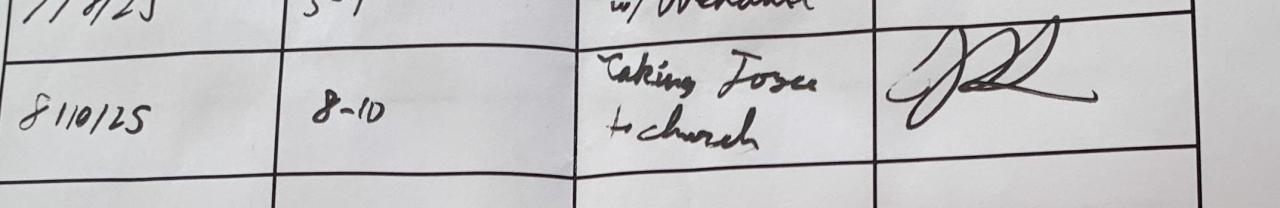 w/
8/10/25
8-10
Taking Joyce
to church